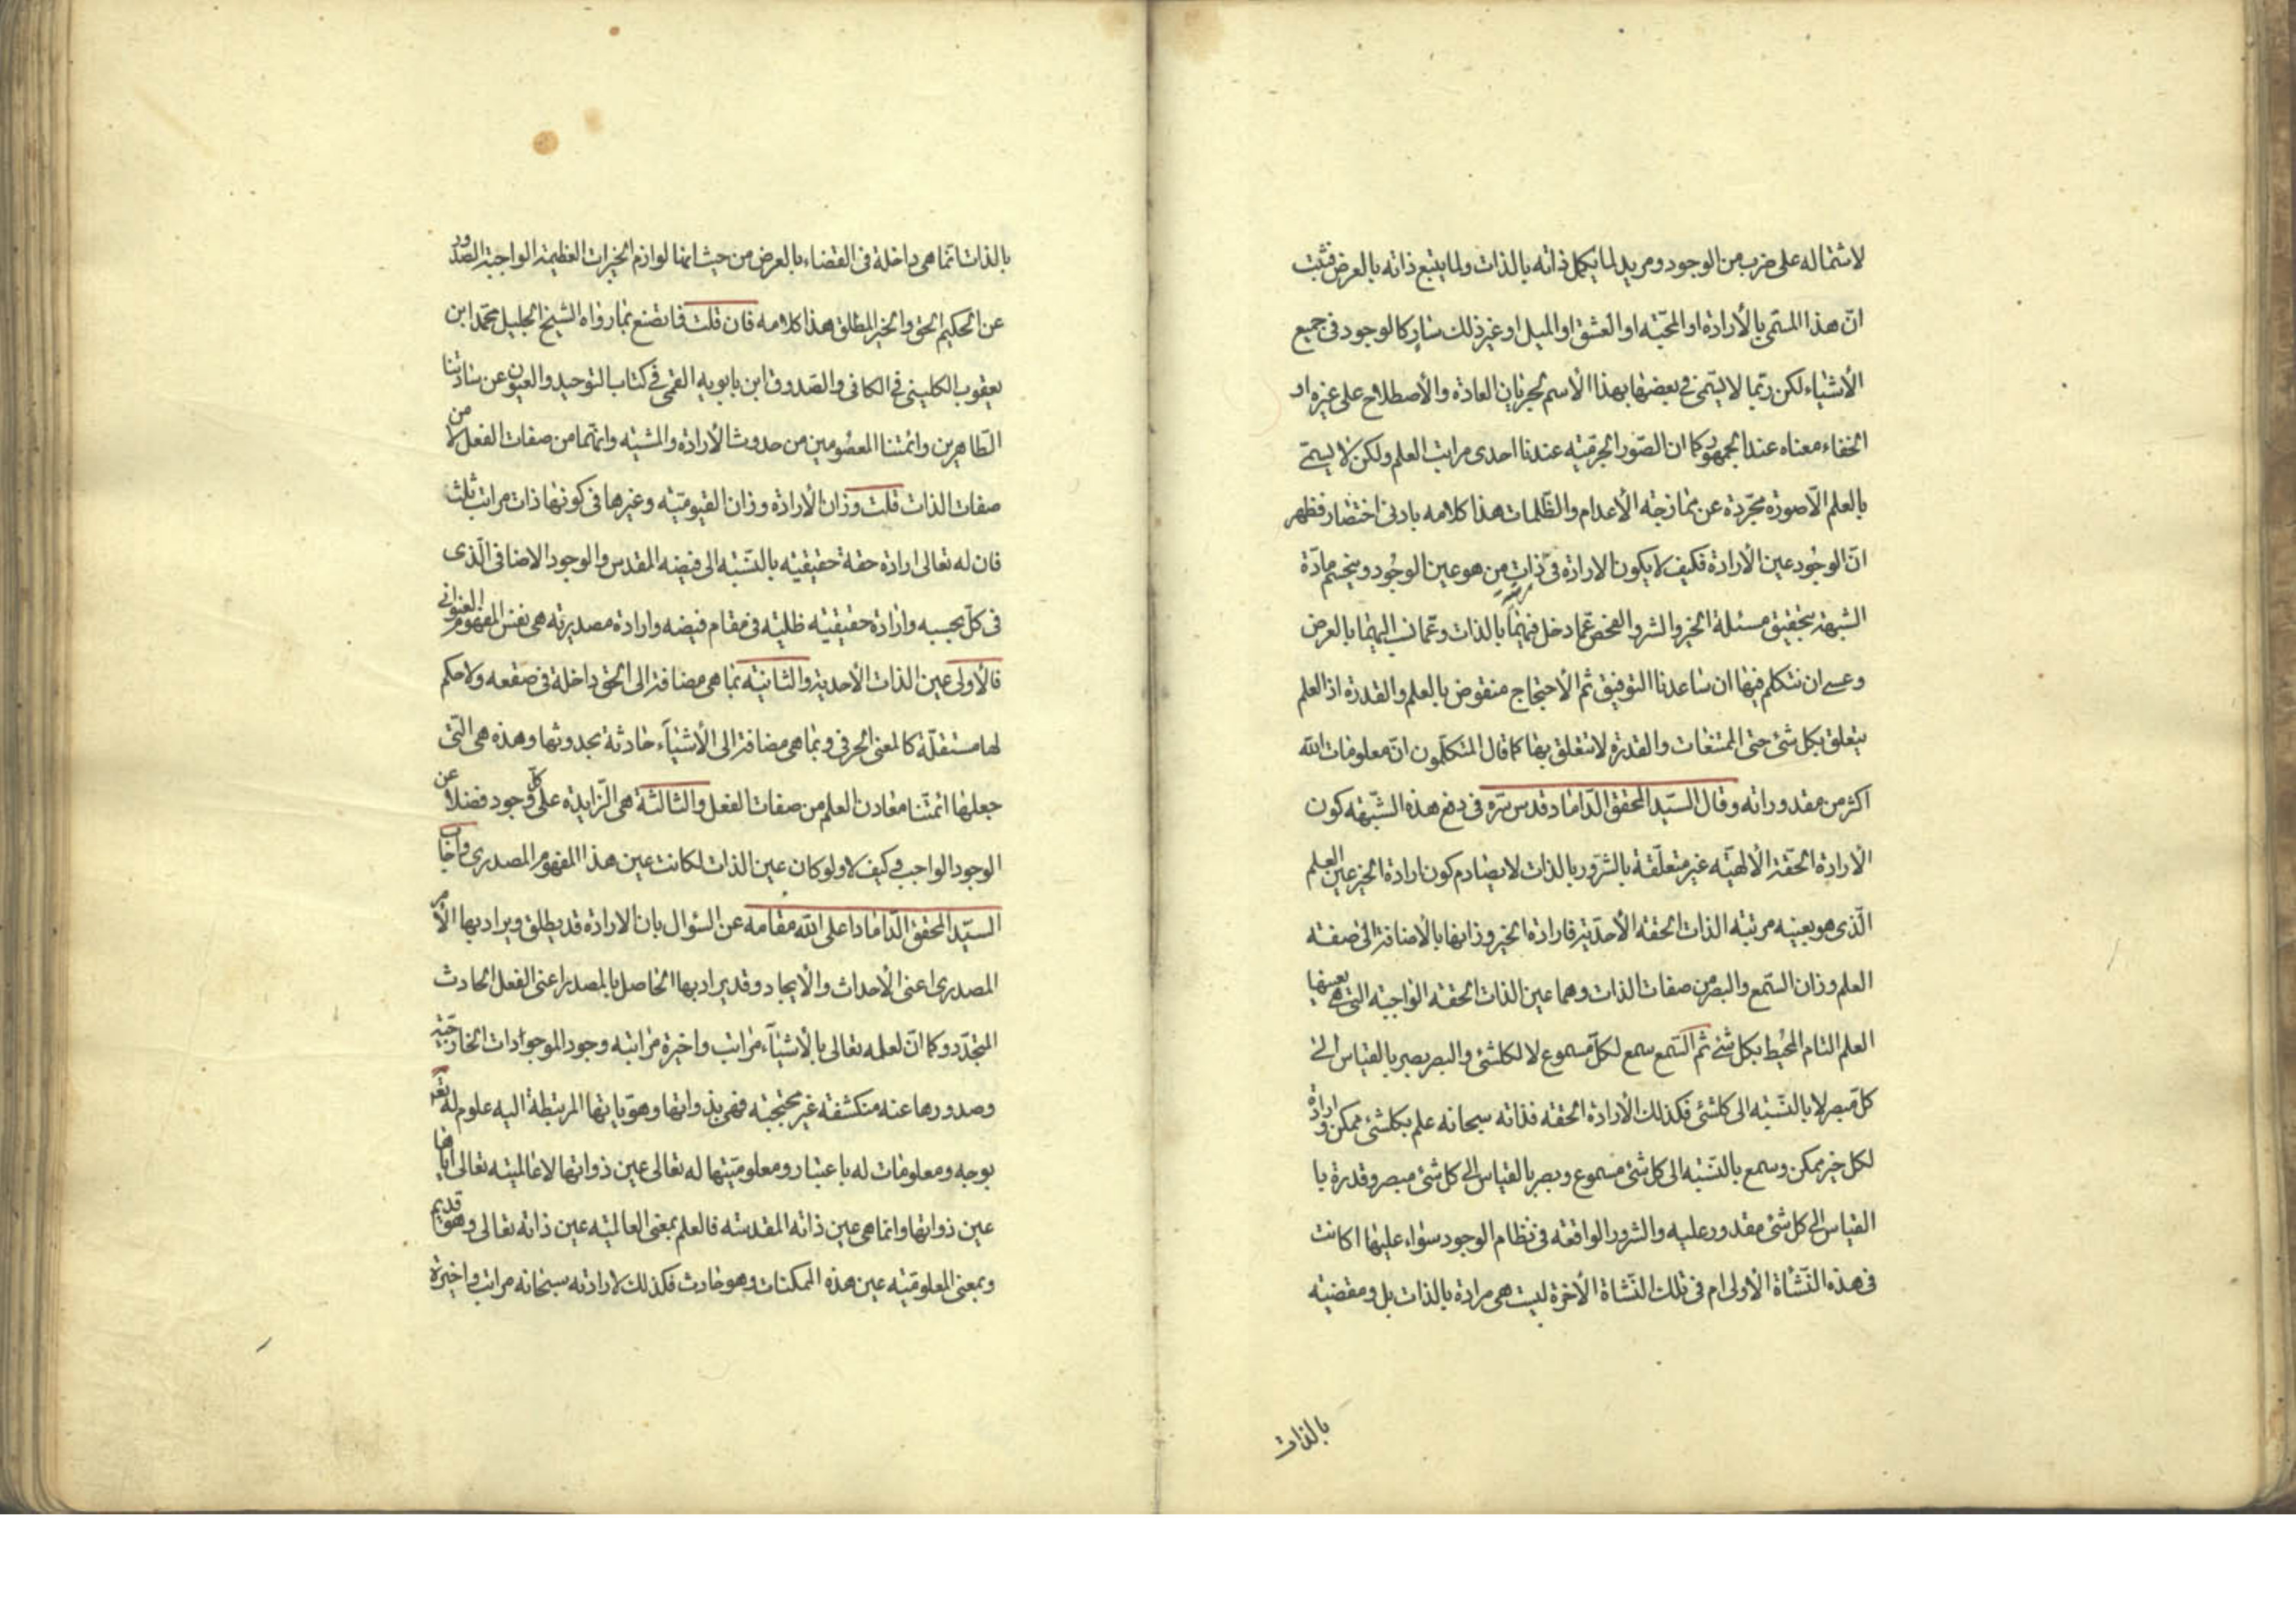 لاشتماله على ضرب من الوجود ومريد لما يكمل ذاته بالذات ولما يتبع ذاته بالعرض فثبت
انّ هذا المسمّى بالأرادة او المحبّه او العشق او الميل او غير ذلك سارٍ كالوجود فى جميع
الأشياء لكن ربّما لا يسمّى فى بعضها بهذا الأسم لجريان العادة والأصطلاح على غيره او
الخفاء معناه عند الجمهور كما ان الصّور الجرميّه عندنا احدى مراتب العلم ولكن لا يسمّى
بالعلم الّا صورة مجرّدة عن ممازجه الأعدام والظّلمات هذا كلامه بادنى اختصار فظهر
انّ الوجُود عين الأرادة فكيف لا يكون الارادة فى ذات من هو عين الوجُود وينحسم مادّة
الشبهة بتحقيق مسئلة الخير والشر والفحص عمّا دخل فيهما بالذات وعمّا نسب اليهما بالعرض
وعسى ان نتكلم فيها ان ساعدنا التوفيق ثم الأحتجاج منقوض بالعلم والقدرة اذ العلم
يتعلق بكل شئ حتى الممتنعات والقدرة لا تتعلق بها كما قال المتكلّمون انّ معلومات الله
اكثر من مقدوراته وقال السيّد المحقق الدّاماد قدس سّره فى دفع هذه الشّبهه كون
الأرادة الحقّة الألهيّه غير متعلّقة بالشرّور بالذات لا يصادم كون ارادة الخير عين العلم
الّذى هو بعينه مرتبّه الذات الحقة الأحديّة فارادة الخير وزانها بالأضافة الى صفته
العلم وزان السّمع والبصر من صفات الذات وهما عين الذات الحقّه الواجبّه التى هى بعينها
العلم التام المحُيط بكل شئ ثم السّمع سمع لكلّ مسموع لا لكلشئ والبصر بصر بالقياس الى
كلّ مبصر لا بالنسّبه الى كلشئ فكذلك الأرادة الحقه فذاته سبحانه علم بكلشئ ممكن وارادة
لكل خير ممكن وسمع بالنسّبه الى كل شئ مسموع وبصر بالقياس الى كل شئ مبصر وقدرة با
القياس الى كل شئ مقدور عليه والشرور الواقعّه فى نظام الوجود سواء عليها اكانت
فى هذه النّشأة الأولى ام فى تلك النّشاة الأخرة ليست هى مرادة بالذات بل ومقضيّه
بالذات
بالذات انّما هى داخلة فى القضاء بالعرض من حيث انها لوازم الخيرات العظيمة الواجبة الصّدور
عن الحكيم الحق والخير المطلق هذا كلامه فان قلت فما تصنع بما رواه الشيخ الجليل محمّد ابن
يعقوب الكلينى فى الكافى والصّدوق ابن بابويه القمى فى كتاب التوحيد والعيون عن ساداتنا
الطّاهرين وائمّتنا المعصُومين من حدوث الأرادة والمشيّه وانّهما من صفات الفعل لا من
صفات الذات قلت وزان الأرادة وزان القيوميّه وغيرها فى كونها ذات مراتب ثلث
فان له تعالى ارادة حقة حقيقيّه بالنسّبه الى فيضه المقدس والوجود الاضافى الّذى
فى كلّ بحسبه وارادة حقيقيّه ظليّه فى مقام فيضه وارادة مصدريّه هى نفس المفهوم العنوانى
فالأولى عين الذات الأحديّة والثانيّه بما هى مضافة الى الحق داخلة فى صقعه ولا حكم
لها مستقلّة كالمعنى الحرفى وبما هى مضافة الى الأشيآء حادثة بحدوثها وهذه هى التّى
جعلها ائمّتنا معادن العلم من صفات الفعل والثالثة هى الزّايدة على كلّ وجود فضلا عن
الوجود الواجب وكيف لا ولو كان عين الذات لكانت عين هذا المفهوم المصدرى واجاب
السيّد المحقق الدّاماد اعلى الله مقامه عن السّؤال بان الارادة قد يطلق ويراد بها الأمر
المصدرى اعنى الأحداث والأيجاد وقد يراد بها الحاصل بالمصدر اعنى الفعل الحادث
المتجدّد وكما انّ لعلمه تعالى بالأشيآء مراتب واخيرة مراتبه وجود الموجودات الخارجيّه
وصدورها عنه منكشفة غير محتجبّه فهى بذواتها وهوّياتها المرتبطة اليه علوم له تعم
بوجه ومعلومات له باعتبار ومعلوميّتها له تعالى عين ذواتها لا عالميّته تعالى اياها
عين ذواتها وانما هى عين ذاته المقدسّه فالعلم بمعنى العالميّه عين ذاته تعالى وهو قديم
وبمعنى المعلوميّه عين هذه الممكنات وهو حادث فكذلك لارادته سبحانه مراتب واخيرة